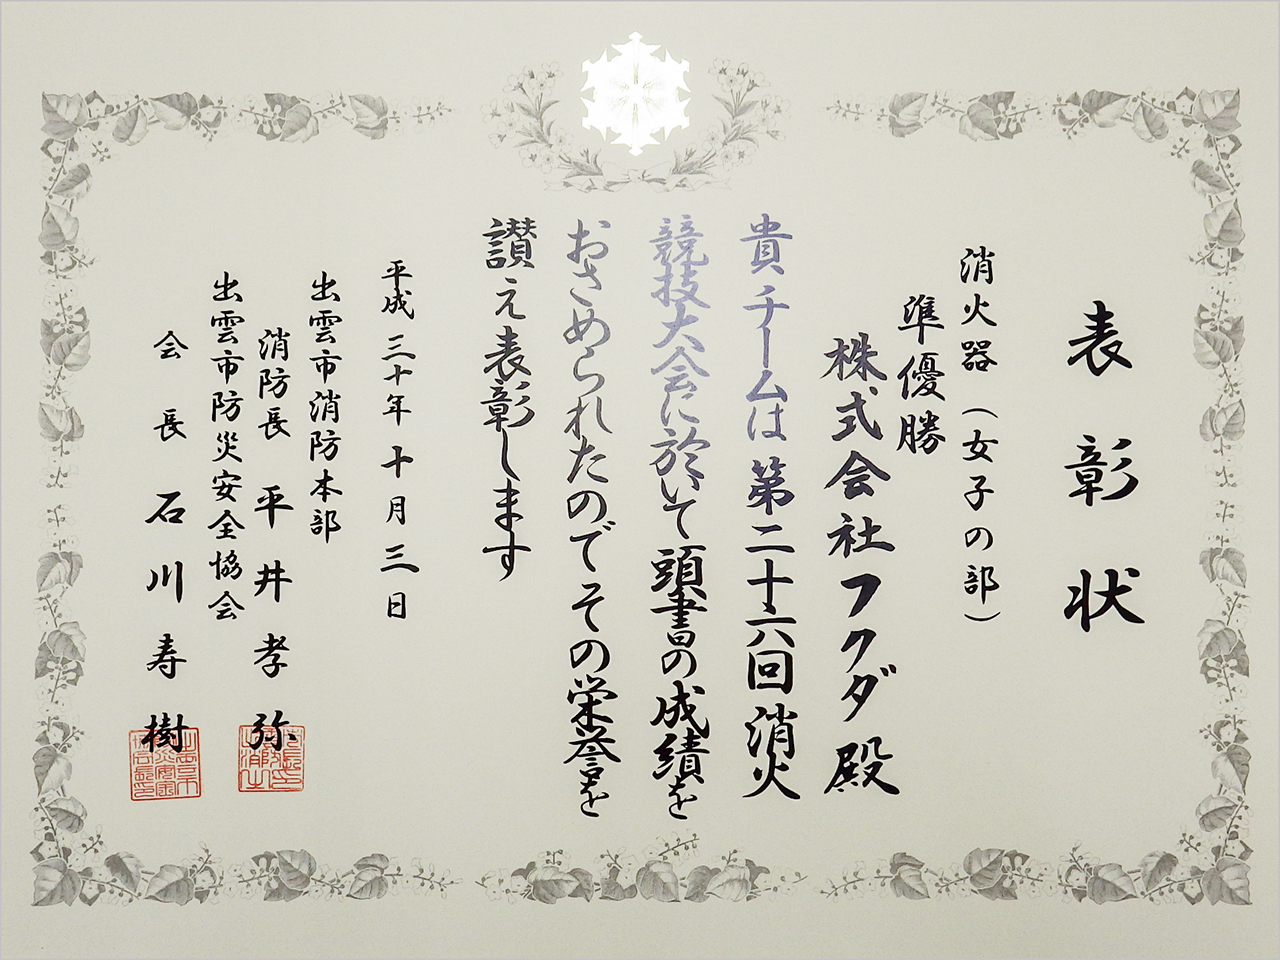 表彰状
消火器(女子の部)
準優勝
株式会社フクダ殿
貴チームは第二十六回消火
競技大会に於いて頭書の成績を
おさめられたのでその栄誉を
讃え表彰します
平成三十年十月三日
出雲市消防本部
消防長 平井孝弥
出雲市防災安全協会
会長 石川寿樹